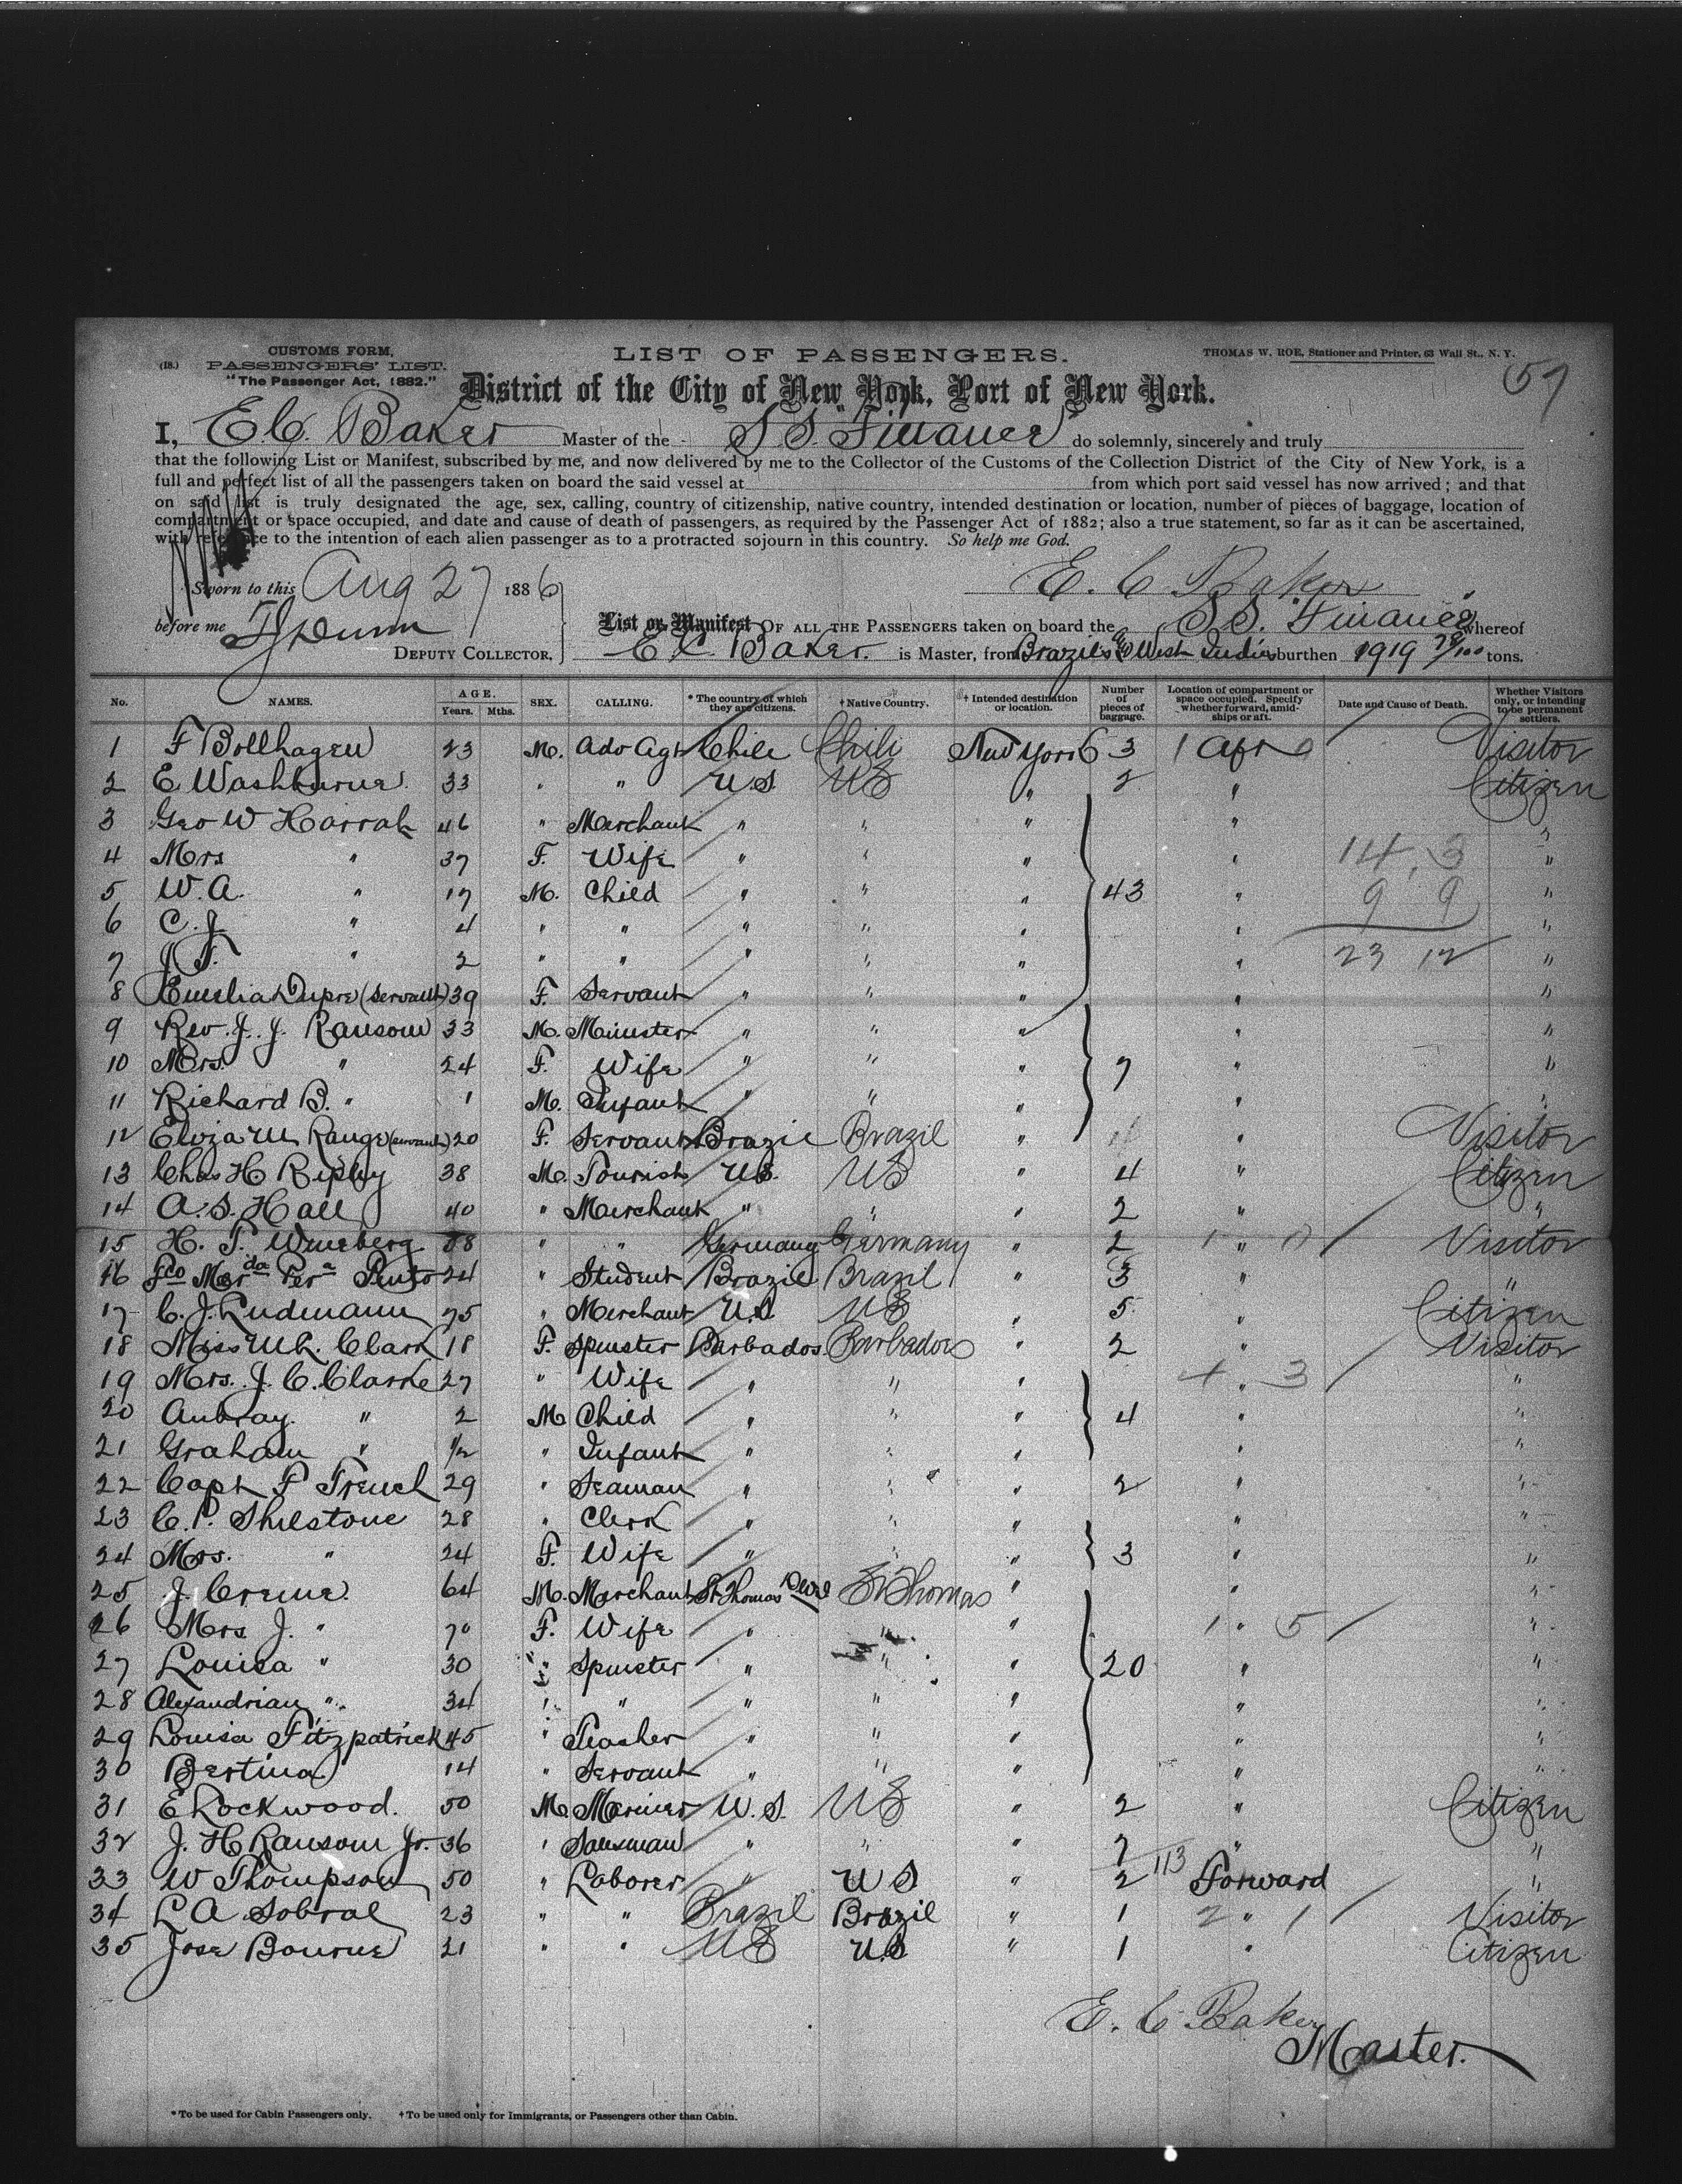 CUSTOMS FORM,
(18.) PASSENGERS' LIST.
"The Passenger Act, 1882."
LIST OF PASSENGERS.
THOMAS W. ROE, Stationer and Printer, 63 Wall St., N. Y.
57
District of the City of New York, Port of New York.
I, E C. Baker Master of the S S. "Finance" do solemnly, sincerely and truly
that the following List or Manifest, subscribed by me, and now delivered by me to the Collector of the Customs of the Collection District of the City of New York, is a
full and perfect list of all the passengers taken on board the said vessel at from which port said vessel has now arrived; and that
on said list is truly designated the age, sex, calling, country of citizenship, native country, intended destination or location, number of pieces of baggage, location of
compartment or space occupied, and date and cause of death of passengers, as required by the Passenger Act of 1882; also a true statement, so far as it can be ascertained,
with reference to the intention of each alien passenger as to a protracted sojourn in this country. So help me God.
Sworn to this Aug 27 1886
E. C Baker
before me Dunn
DEPUTY COLLECTOR,
List or Manifest OF ALL THE PASSENGERS taken on board the S S. "Finance" whereof
E C. Baker. is Master, from Brazil & West Indies burthen 1919 79/100 tons.
No. NAMES. AGE. Years. Mths. SEX. CALLING. * The country of which they are citizens. † Native Country. † Intended destination or location. Number of pieces of baggage. Location of compartment or space occupied. Specify whether forward, amidships or aft. Date and Cause of Death. Whether Visitors only, or intending to be permanent settlers.
1 F Bollhagen 23 M. Adv Agt Chile Chili New York 3 1 Aft 0 Visitor
2 E Washburne. 33 " " U.S. US " 2 " Citizen
3 Geo W Harrah 46 " Merchant " " " " "
4 Mrs " 37 F. Wife " " " " 14 3 "
5 W. A. " 17 M. Child " " " 43 " 9 9 "
6 C. J. " 4 " " " " " " "
7 J F. " 2 " " " " " " 23 12 "
8 Emelia Dupre (Servant) 39 F. Servant " " " " "
9 Rev. J. J. Ransom 33 M. Minister " " " " "
10 Mrs. " 24 F. Wife " " " 7 " "
11 Richard B. " 1 M. Infant " " " " "
12 Elviza M Range (servant) 20 F. Servant Brazil Brazil " " Visitor
13 Chas H Ripley 38 M. Tourist US. US " 4 " Citizen
14 A. S. Hall 40 " Merchant " " " 2 " "
15 H. T. Wineberg " " Germany Germany " 2 1 " 0 Visitor
16 Fco Mar da Pera Pinto 24 " Student Brazil Brazil " 3 " "
17 C. J. Ludmann 75 " Merchant U.S US " 5 " Citizen
18 Miss M R. Clark 18 F. Spinster Barbados. Barbados " 2 " Visitor
19 Mrs. J. C. Clarke 27 " Wife " " " 4 " 3 "
20 Aubray. " 2 M Child " " " 4 " "
21 Graham " 1/2 " Infant " " " " "
22 Capt F French 29 " Seaman " " " 2 " "
23 C. P. Shilstone 28 " Clerk " " " " "
24 Mrs. " 24 F. Wife " " " 3 " "
25 J. Creme. 64 M. Merchant St Thomas DWI St Thomas " " "
26 Mrs J. " 70 F. Wife " " " 1 " 5 "
27 Louisa " 30 " Spinster " " " 20 " "
28 Alexandrian " 34 " " " " " " "
29 Louisa Fitzpatrick 45 " Teacher " " " " "
30 Bertina 14 " Servant " " " " "
31 E Lockwood. 50 M. Mariner U. S. US " 2 " Citizen
32 J. H Ransom Jr. 36 " Salesman " " " 7 " "
113
33 W Thompson 50 " Laborer " U S " 2 Forward "
34 L A Sobral 23 " " Brazil Brazil " 1 2 " 1 Visitor
35 Jose Bourne 21 " " US US " 1 " Citizen
E. C Baker
Master.
* To be used for Cabin Passengers only. † To be used only for Immigrants, or Passengers other than Cabin.